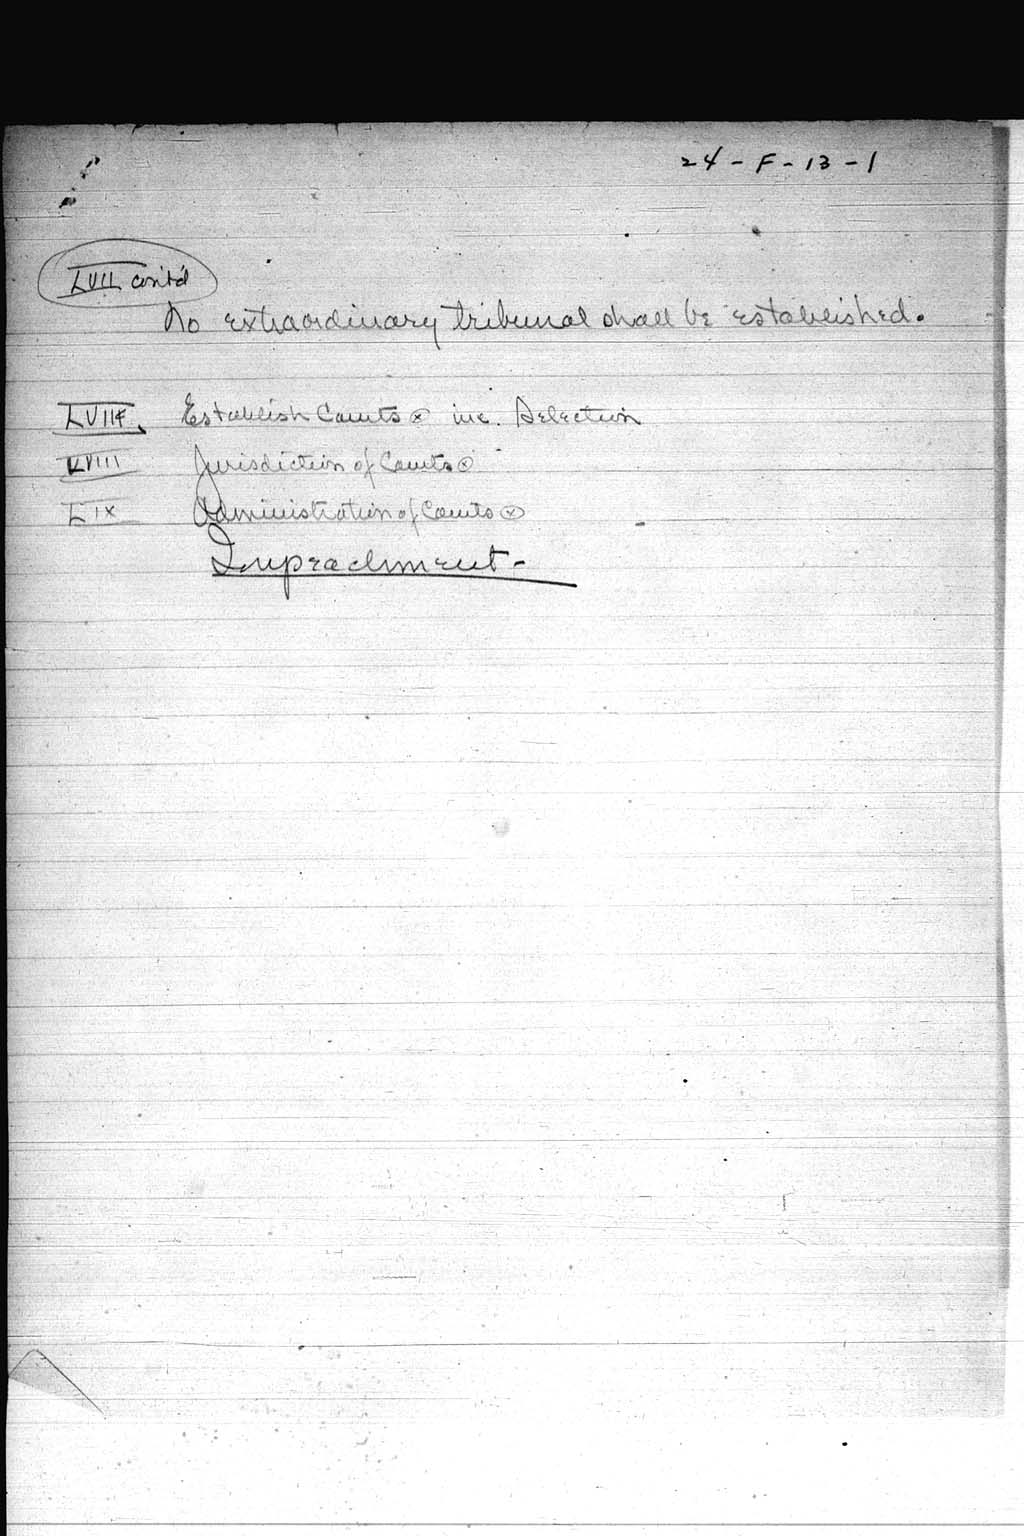 24 - F - 13 - 1
LVII cont'd
No extraordinary tribunal shall be established.
Establish Courts ⓧ inc. Selection
LVIII Jurisdiction of Courts ⓧ
LIX Administration of Courts ⓧ
Impeachment -